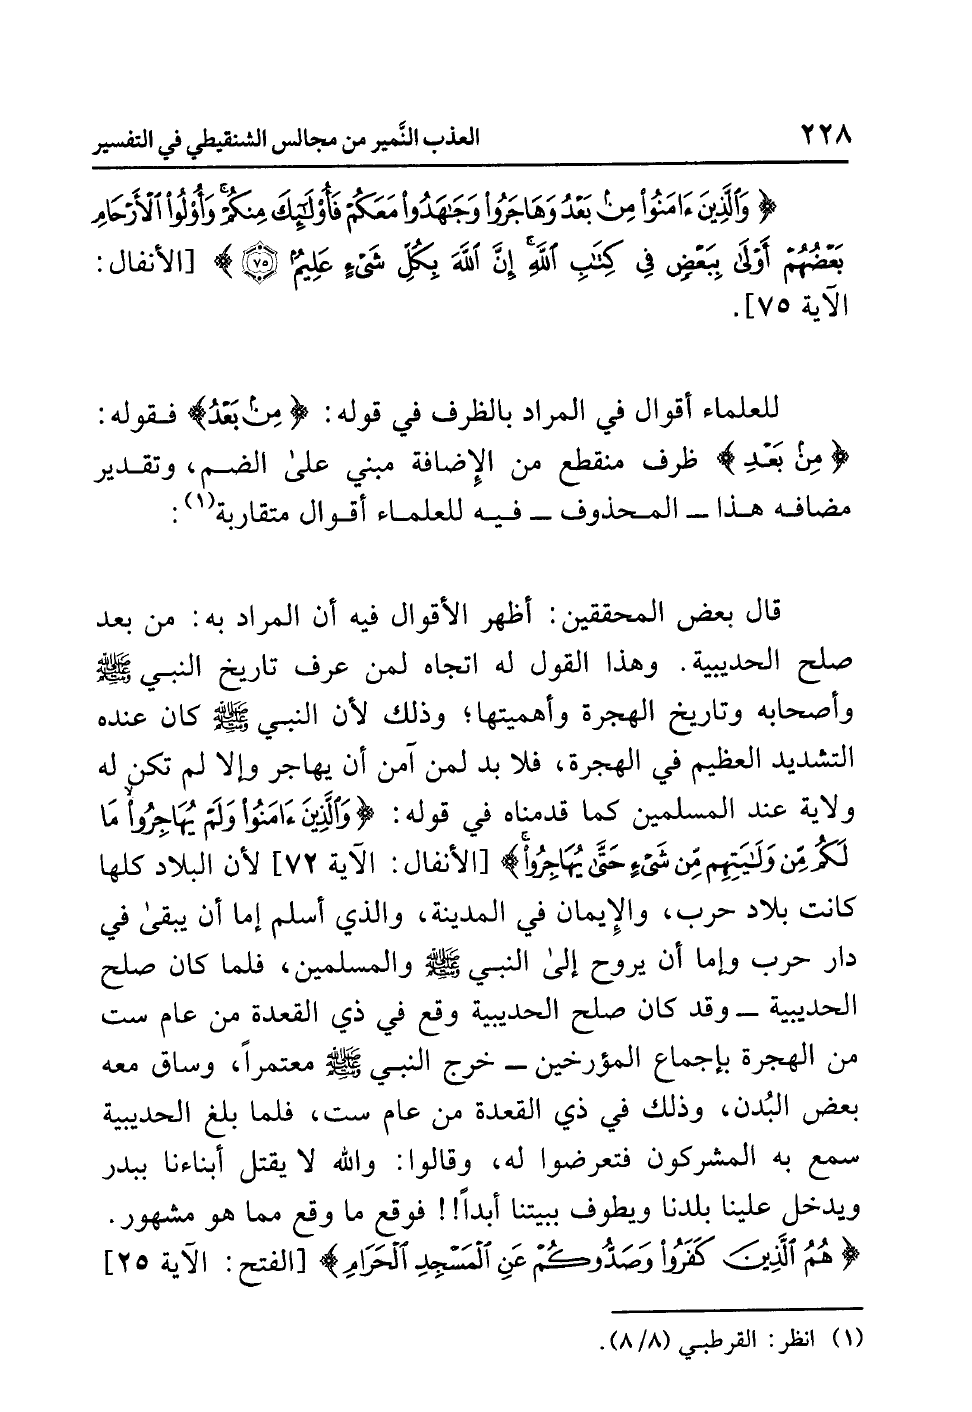 ٢٢٨ العذب النَّمير من مجالس الشنقيطي في التفسير
﴿ وَٱلَّذِينَ ءَامَنُوا۟ مِنۢ بَعْدُ وَهَاجَرُوا۟ وَجَٰهَدُوا۟ مَعَكُمْ فَأُو۟لَٰٓئِكَ مِنكُمْ ۚ وَأُو۟لُوا۟ ٱلْأَرْحَامِ
بَعْضُهُمْ أَوْلَىٰ بِبَعْضٍ فِى كِتَٰبِ ٱللَّهِ ۗ إِنَّ ٱللَّهَ بِكُلِّ شَىْءٍ عَلِيمٌۢ ٧٥ ﴾ [الأنفال:
الآية ٧٥].
للعلماء أقوال في المراد بالظرف في قوله: ﴿ مِنۢ بَعْدُ﴾ فـقوله:
﴿ مِنۢ بَعْدِ ﴾ ظرف منقطع من الإِضافة مبني علىٰ الضـم، وتقـدير
مضافه هـذا ـ المـحذوف ـ فيـه للعلمـاء أقـوال متقاربة(١):
قال بعض المحققين: أظهر الأقوال فيه أن المراد به: من بعد
صلح الحديبية. وهذا القول له اتجاه لمن عرف تاريخ النبـي ﷺ
وأصحابه وتاريخ الهجرة وأهميتها؛ وذلك لأن النبـي ﷺ كان عنده
التشديد العظيم في الهجرة، فلا بد لمن آمن أن يهاجر وإلا لم تكن له
ولاية عند المسلمين كما قدمناه في قوله: ﴿ وَٱلَّذِينَ ءَامَنُوا۟ وَلَمْ يُهَاجِرُوا۟ مَا
لَكُم مِّن وَلَٰيَتِهِم مِّن شَىْءٍ حَتَّىٰ يُهَاجِرُوا۟ ۚ﴾ [الأنفال: الآية ٧٢] لأن البلاد كلها
كانت بلاد حرب، والإِيمان في المدينة، والذي أسلم إما أن يبقىٰ في
دار حرب وإما أن يروح إلىٰ النبـي ﷺ والمسلمين، فلما كان صلح
الحديبية ـ وقد كان صلح الحديبية وقع في ذي القعدة من عام ست
من الهجرة بإجماع المؤرخين ـ خرج النبـي ﷺ معتمراً، وساق معه
بعض البُدن، وذلك في ذي القعدة من عام ست، فلما بلغ الحديبية
سمع به المشركون فتعرضوا له، وقالوا: والله لا يقتل أبناءنا ببدر
ويدخل علينا بلدنا ويطوف ببيتنا أبداً!! فوقع ما وقع مما هو مشهور.
﴿ هُمُ ٱلَّذِينَ كَفَرُوا۟ وَصَدُّوكُمْ عَنِ ٱلْمَسْجِدِ ٱلْحَرَامِ ﴾ [الفتح: الآية ٢٥]
(١) انظر: القرطبـي (٨/٨).